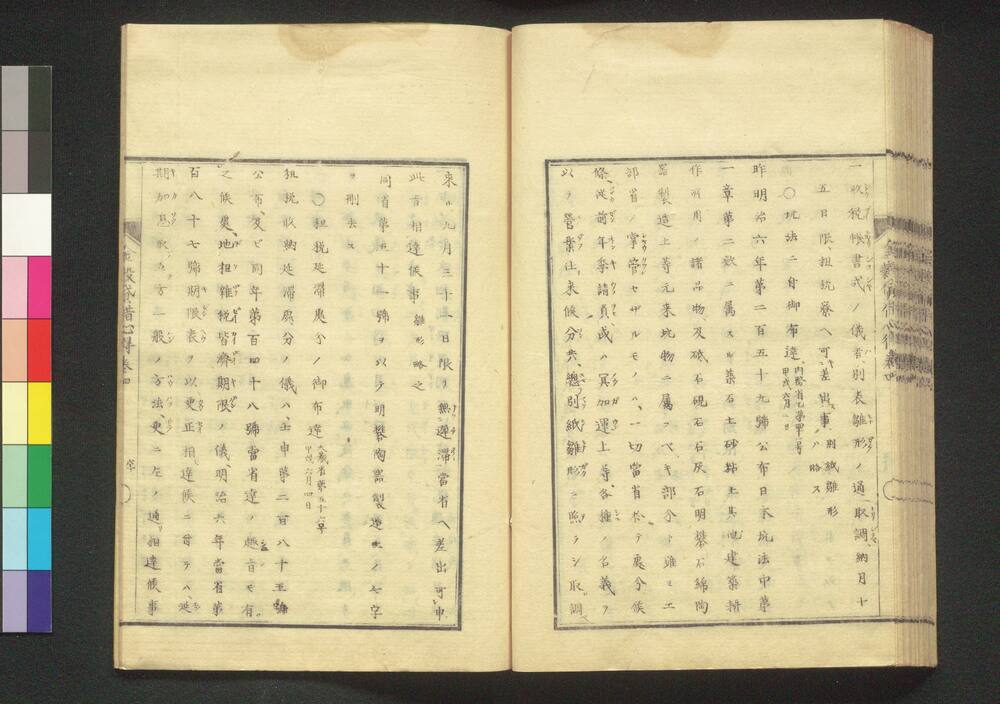 一收税帳書式ノ儀者別表雛形ノ通取調納月十
五日限租税寮ヘ可差出事 別紙雛形ハ略ス
〇坑法ニ付御布達 内務省乙第四十一号 甲戌六月一日
昨明治六年第二百五十九號公布日本坑法中第
一章第二款ニ属スル藥石土砂粘土其他建築耕
作所用ノ諸品物及砥石硯石石灰石明礬石綿陶
器製造上等元来坑物ニ属スヘキ部分ト雖モ工
部省ノ掌管セサルモノハ、一切當省於テ處分候
條、從前年季請負或ハ冥加運上等、各種ノ名義ヲ
以テ營業仕来候分共、總テ別紙雛形ニ照ラシ取調
来ル九月三十一日限リ無遅滞當省ヘ差出可申
此旨相達候事 雛形略之
同省第五十一號ヲ以テ明礬陶器製造上ノ七字
ヲ刪去ス
〇租税延滞處分ノ御布達 大蔵省第五十一号 甲戌六月四日
租税收納延滞處分ノ儀ハ、壬申第二百八十五號
公布、及ビ同年第百四十八號當省達ノ趣旨モ有
之候處、地租雑税皆濟期限ノ儀、明治六年當省第
百八十七號期限表ヲ以更正相達候ニ付テハ、延
期加息取立方一般ノ方法、更ニ左ノ通リ相達候事
金穀貸借心得巻四